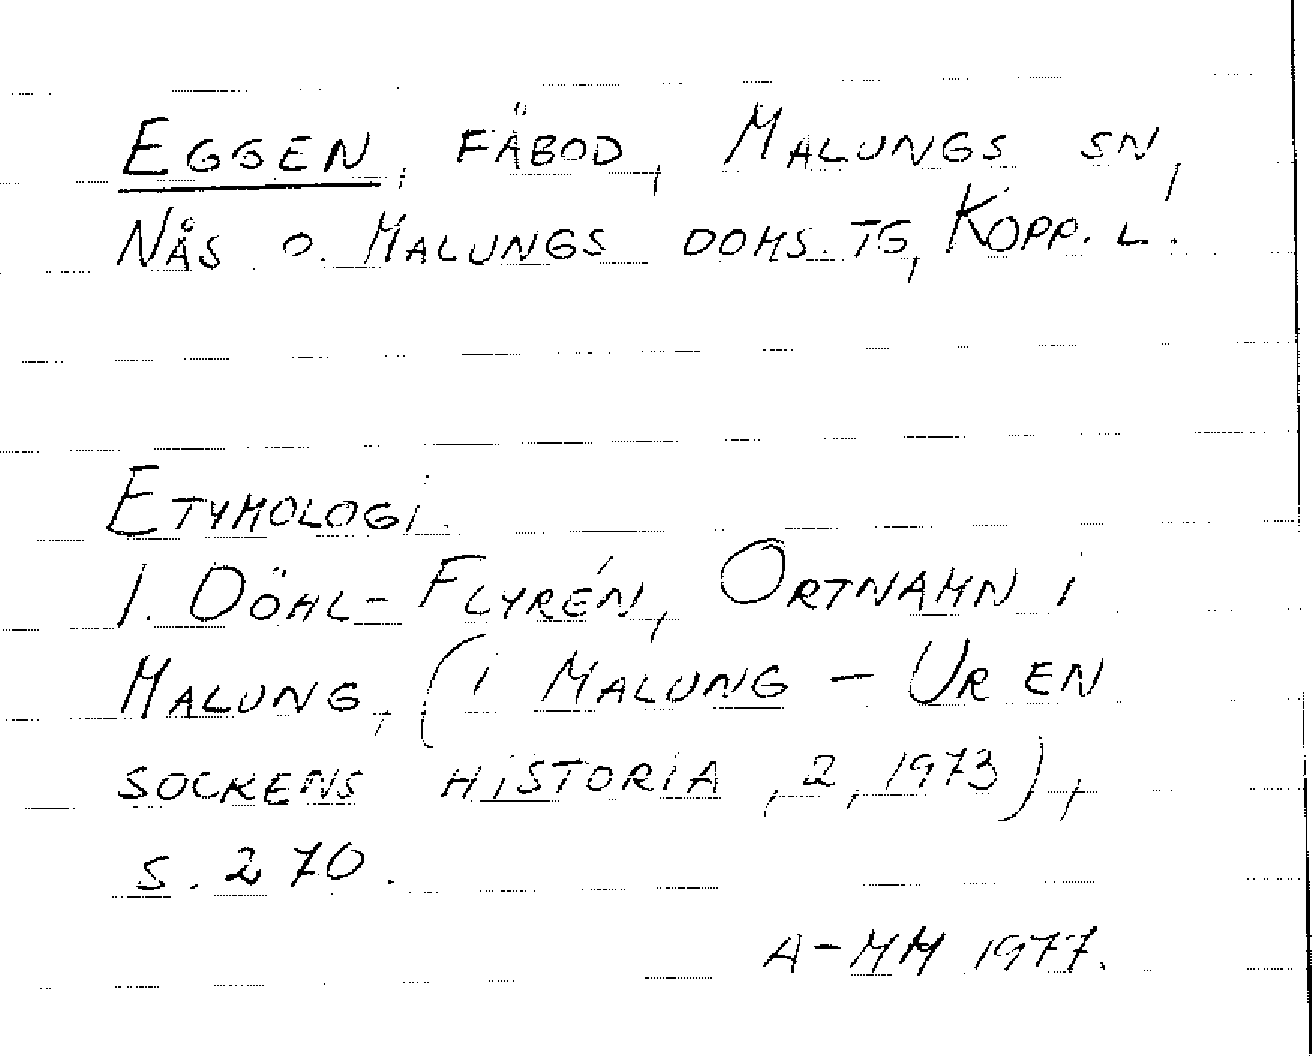 EGGEN, FÄBOD, MALUNGS SN,
NÅS O. MALUNGS DOMS. TG, KOPP. L.
ETYMOLOGI.
I. DÖHL-FLYRÉN, ORTNAMN I
MALUNG, (I MALUNG – UR EN
SOCKENS HISTORIA, 2, 1973),
S. 270.
A-MM 1977.